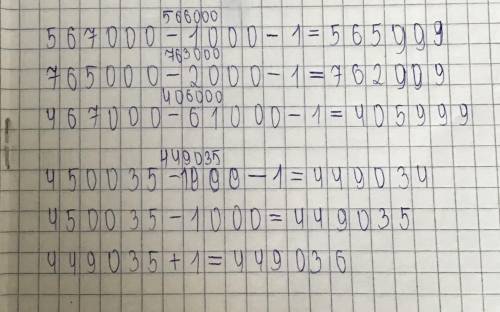 566000
567000-1000-1=565999
763000
765000-2000-1=762999
406000
467000-61000-1=405999
449035
450035-1000-1=449034
450035-1000=449035
449035+1=449036